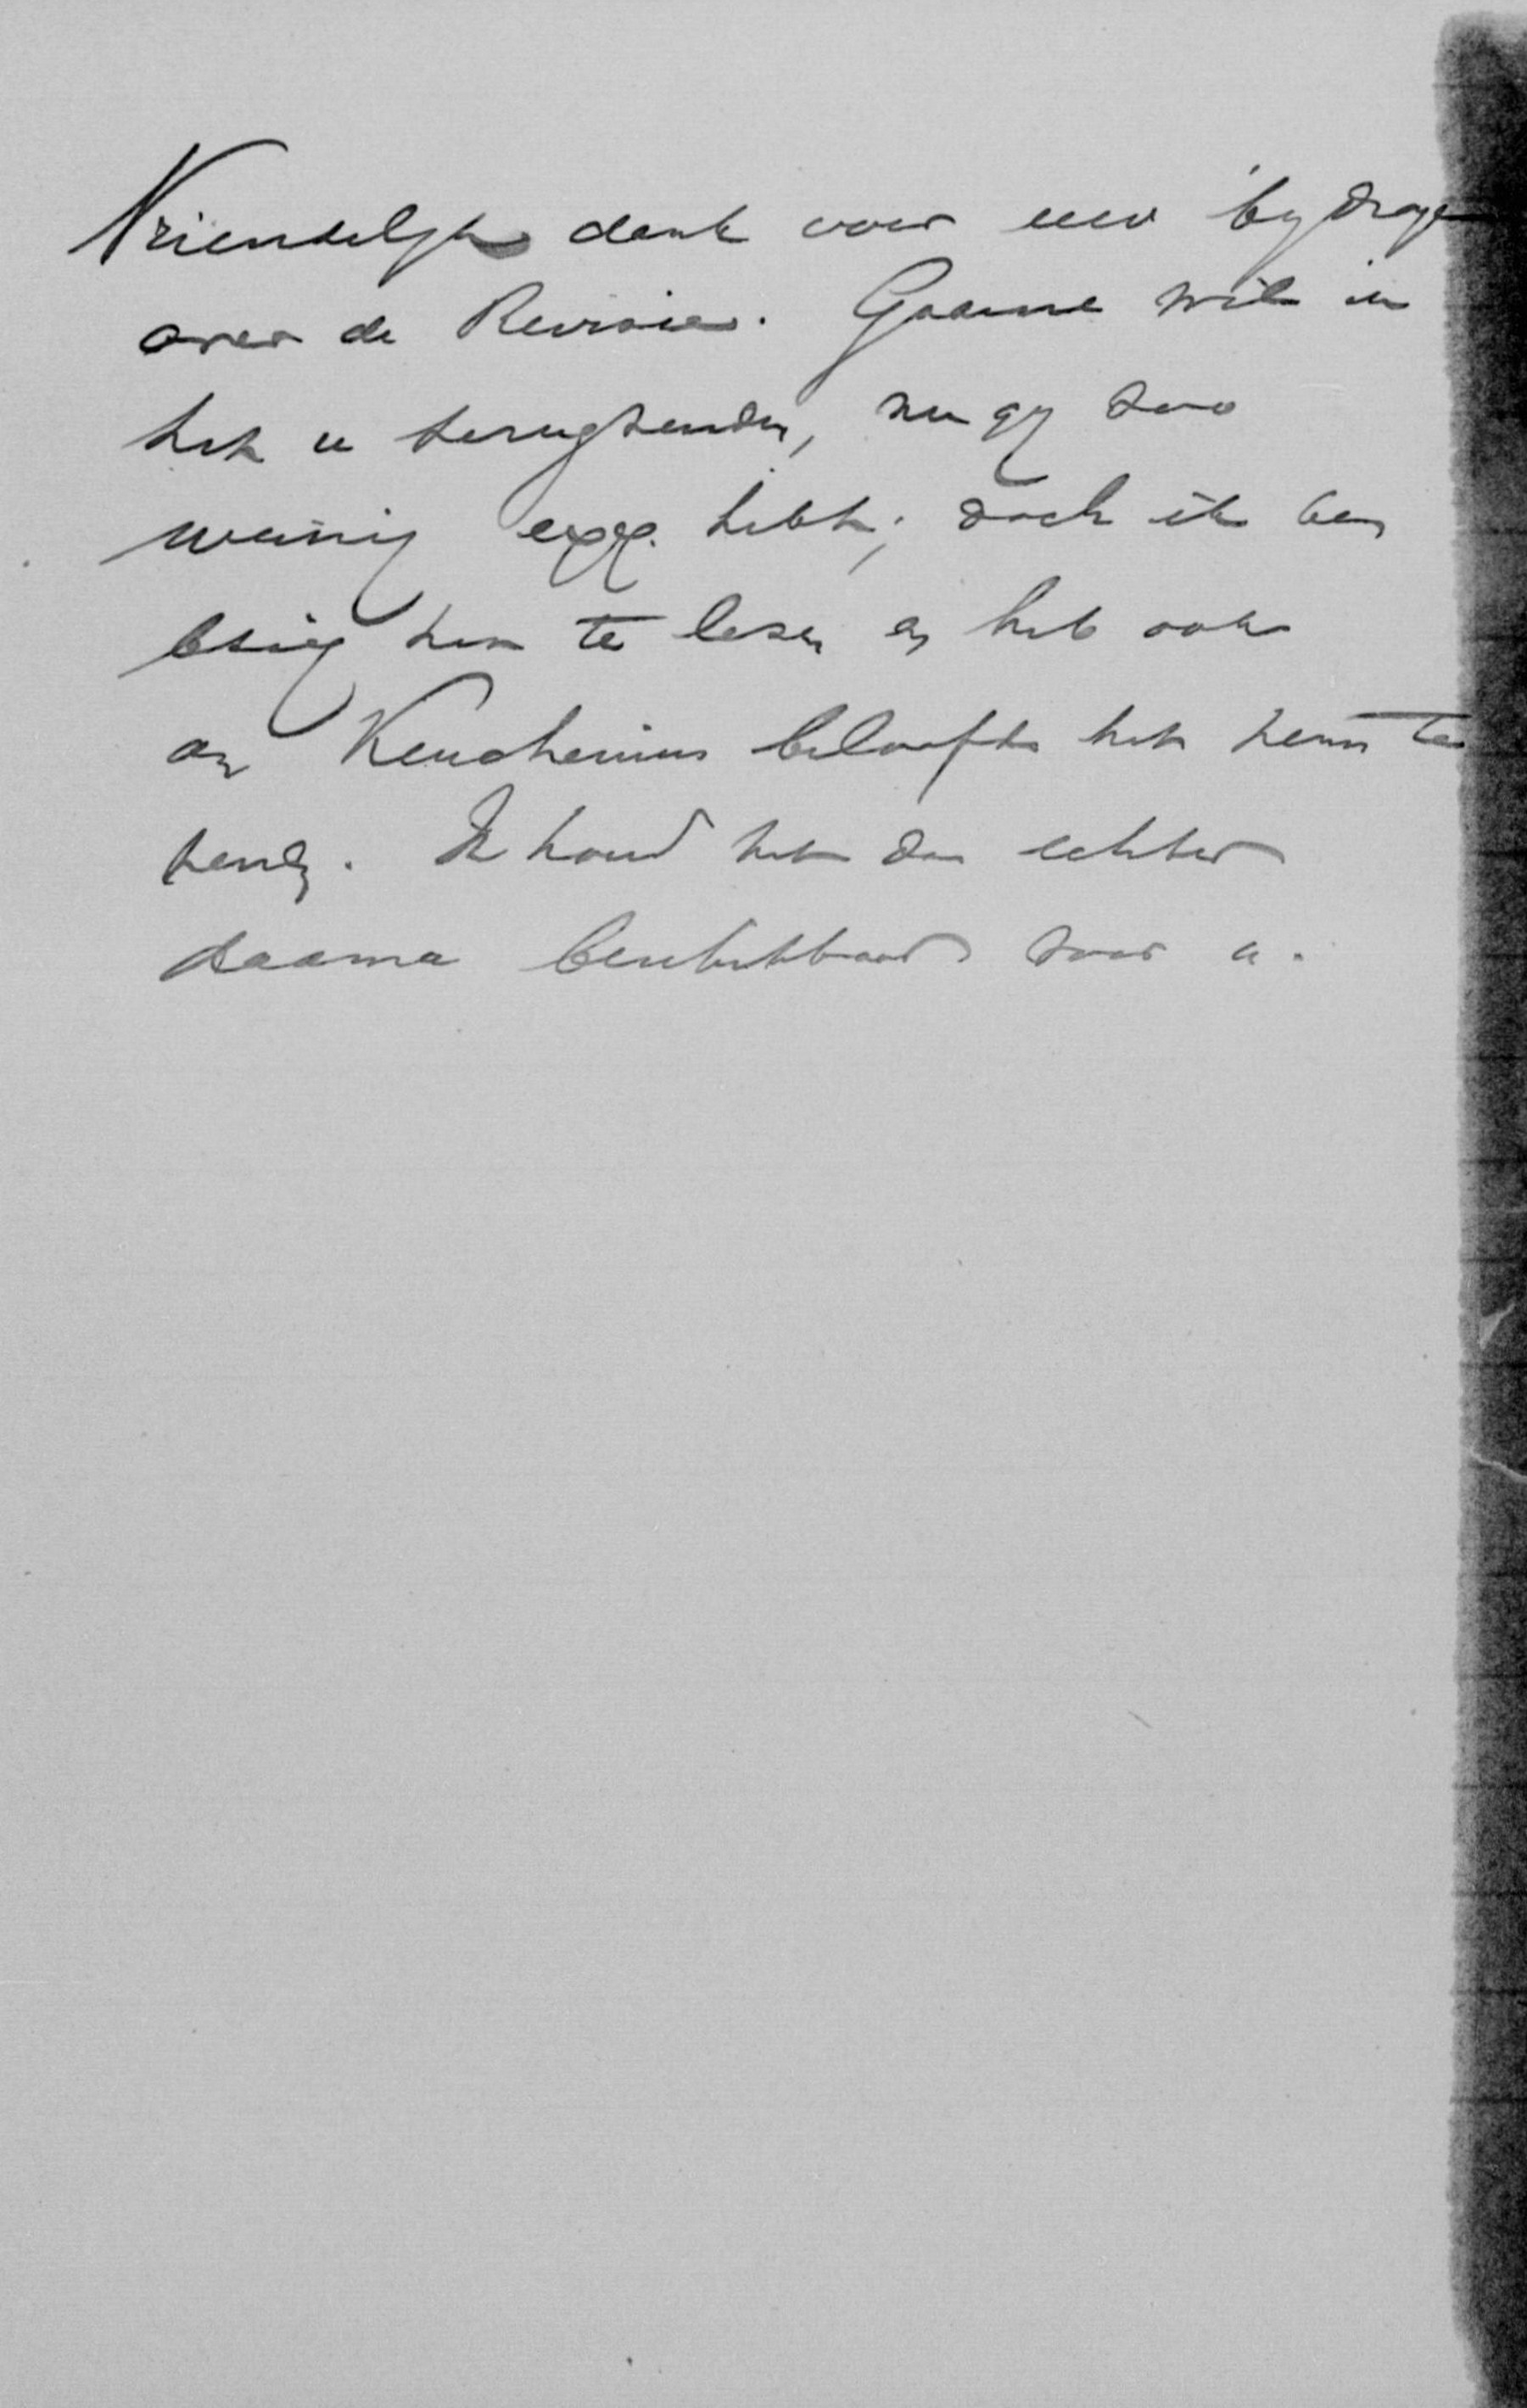 Vriendelijk dank voor uw bydrage
over de Revisie. Gaarne wil ik
het u terugzenden, nu gy zoo
weinig expp. hebt; doch ik ben
bezig hem te lezen en heb ook
aan Keuchenius beloofd het hem te
zenden. Ik houd het dan echter
daarna beschikbaar voor u.